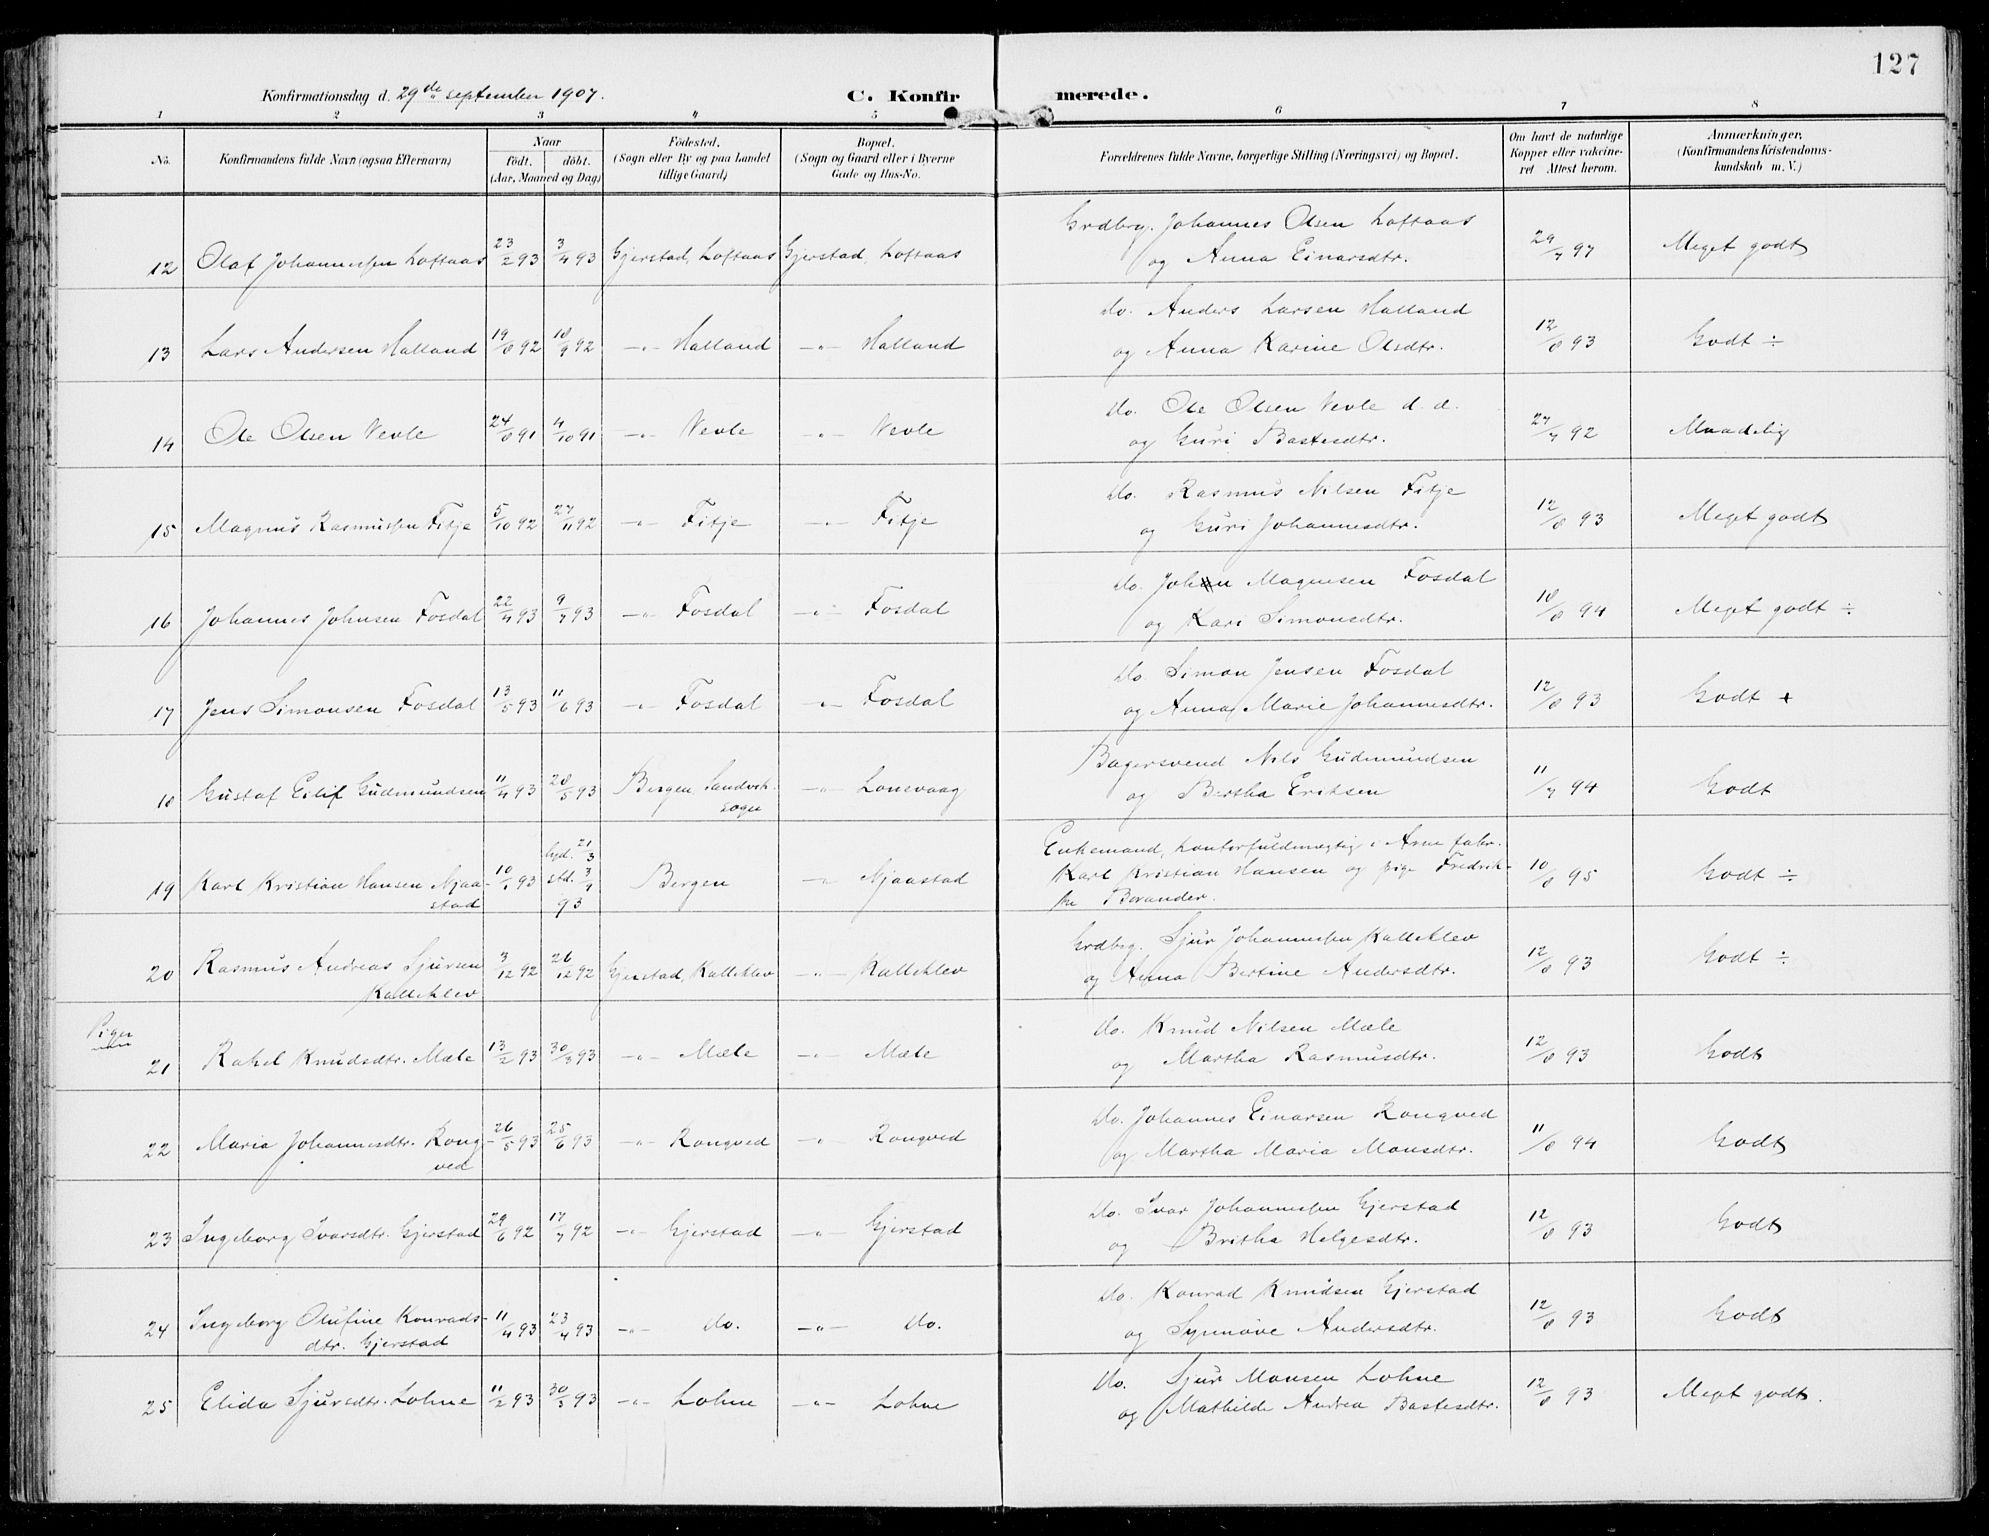 127
Konfirmationsdag d. 29de september 1907. C. Konfirmerede.
1 2 3 4 5 6 7 8
No. Konfirmandens fulde Navn (ogsaa Efternavn) Naar født. døbt. (Aar, Maaned og Dag) Fødested. (Sogn eller By og paa Landet tillige Gaard) Bopæl. (Sogn og Gaard eller i Byerne Gade og Hus-No. Forældrenes fulde Navne, borgerlige Stilling (Næringsvei) og Bopæl. Om havt de naturlige Kopper eller vakcineret Attest herom. Anmærkninger, (Konfirmandens Kristendomskundskab m. V.)
12 Olaf Johannessen Loftaas 23/2 93 3/4 93 Gjerstad, Loftaas Gjerstad, Loftaas Grdbrg. Johannes Olsen Loftaas
og Anna Einarsdtr. 29/7 97 Meget godt
13 Lars Andersen Halland 19/8 92 18/9 92 –"– Halland –"– Halland do. Anders Larsen Halland
og Anna Karine Olsdtr. 12/8 93 Godt ÷
14 Ole Olsen Nevle 24/8 91 4/10 91 –"– Nevle –"– Nevle do. Ole Olsen Nevle d. d.
og Guri Bastesdtr. 27/7 92 Maadelig
15 Magnus Rasmussen Fitje 5/10 92 27/11 92 –"– Fitje –"– Fitje do. Rasmus Nilsen Fitje
og Guri Johannesdtr. 12/8 93 Meget godt
16 Johannes Johnsen Fosdal 22/4 93 9/7 93 –"– Fosdal –"– Fosdal do. John Magnesen Fosdal
og Kari Simonsdtr. 18/8 94 Meget godt ÷
17 Jens Simonsen Fosdal 13/5 93 11/6 93 –"– Fosdal –"– Fosdal do Simon Jensen Fosdal
og Anna Marie Johannesdtr. 12/8 93 Godt +
18 Gustaf Eilif Gudmundsen 11/4 93 28/5 93 Bergen Sandvik. –"– Lonevaag Bagersvend Nils Gudmundsen
sogn og Bertha Eriksen 11/7 94 Godt
19 Karl Kristian Hansen Mjaa- 10/1 93 hjd. 21/3 std. 3/4 93 Bergen –"– Mjaastad Enkemand, kontorfuldmægtig i Arne fabr.
stad Karl Kristian Hansen og pige Fredrik-
ke Borander. 10/8 95 Godt ÷
20 Rasmus Andreas Sjursen 3/12 92 26/12 92 Gjerstad, Kalleklev –"– Kalleklev Grdbrg. Sjur Johannessen Kalleklev
Kalleklev og Anna Bertine Andersdtr. 12/8 93 Godt ÷
Piger
21 Rakel Knudsdtr. Mæle 13/2 93 30/3 93 –"– Mæle –"– Mæle do. Knud Nilsen Mæle
og Martha Rasmusdtr. 12/8 93 Godt
22 Maria Johannesdtr. Rong- 26/5 93 25/6 93 –"– Rongved –"– Rongved do. Johannes Einarsen Rongved
ved og Martha Maria Monsdtr. 11/8 94 Godt
23 Ingeborg Ivarsdtr. Gjerstad 29/6 92 17/7 92 –"– Gjerstad –"– Gjerstad do. Ivar Johannessen Gjerstad
og Britha Helgesdtr. 12/8 93 Godt
24 Ingeborg Olufine Konrads- 11/4 93 23/4 93 –"– do. –"– do. do. Konrad Knudsen Gjerstad
dtr. Gjerstad og Synnøve Andersdtr. 12/8 93 Godt
25 Elida Sjursdtr. Lohne 11/2 93 30/3 93 –"– Lohne –"– Lohne do. Sjur Monsen Lohne
og Mathilde Andrea Bastesdtr. 12/8 93 Meget godt.